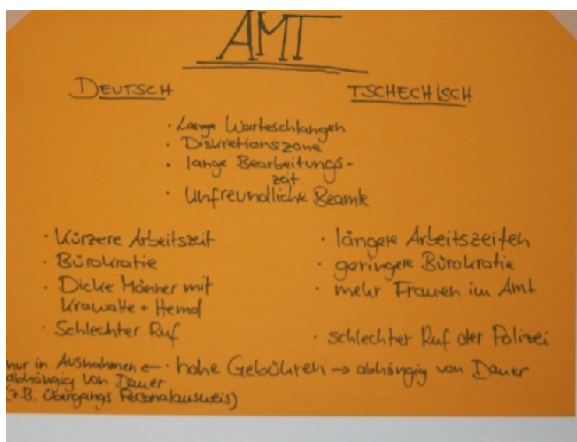 AMT
DEUTSCH TSCHECHISCH
· Lange Warteschlangen
· Diskretionszone
· lange Bearbeitungs-
zeit
· Unfreundliche Beamte
· Kürzere Arbeitszeit
· Bürokratie
· Dicke Männer mit
Krawatte + Hemd
· Schlechter Ruf
· längere Arbeitszeiten
· geringere Bürokratie
· mehr Frauen im Amt
· schlechter Ruf der Polizei
nur in Ausnahmen ← · hohe Gebühren → abhängig von Dauer
abhängig von Dauer
(z.B. Übergangs Personalausweis)